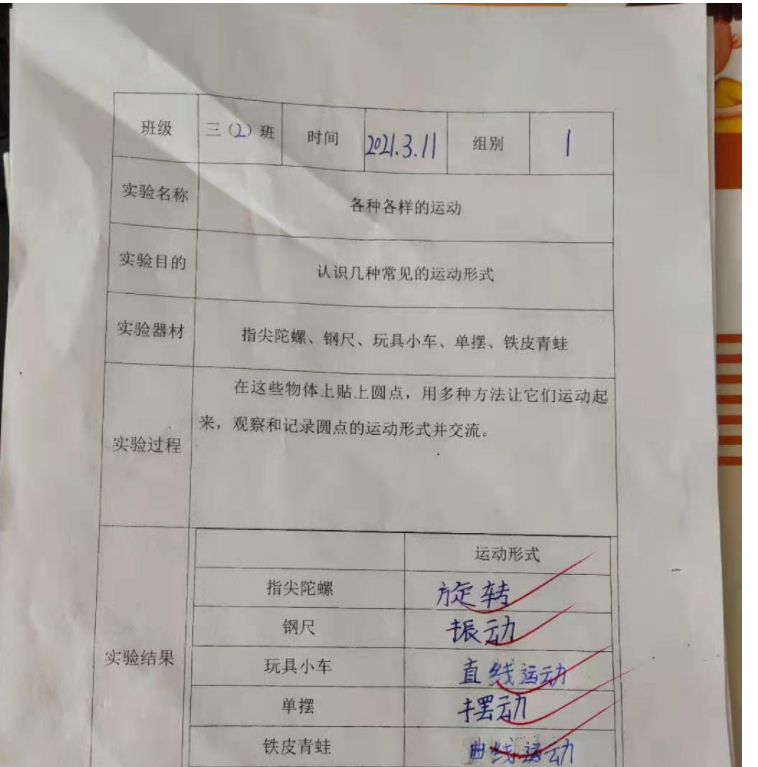 班级 三（2）班 时间 2021.3.11 组别 1
实验名称 各种各样的运动
实验目的 认识几种常见的运动形式
实验器材 指尖陀螺、钢尺、玩具小车、单摆、铁皮青蛙
实验过程
在这些物体上贴上圆点，用多种方法让它们运动起
来，观察和记录圆点的运动形式并交流。
实验结果
运动形式
指尖陀螺 旋转
钢尺 振动
玩具小车 直线运动
单摆 摆动
铁皮青蛙 曲线运动